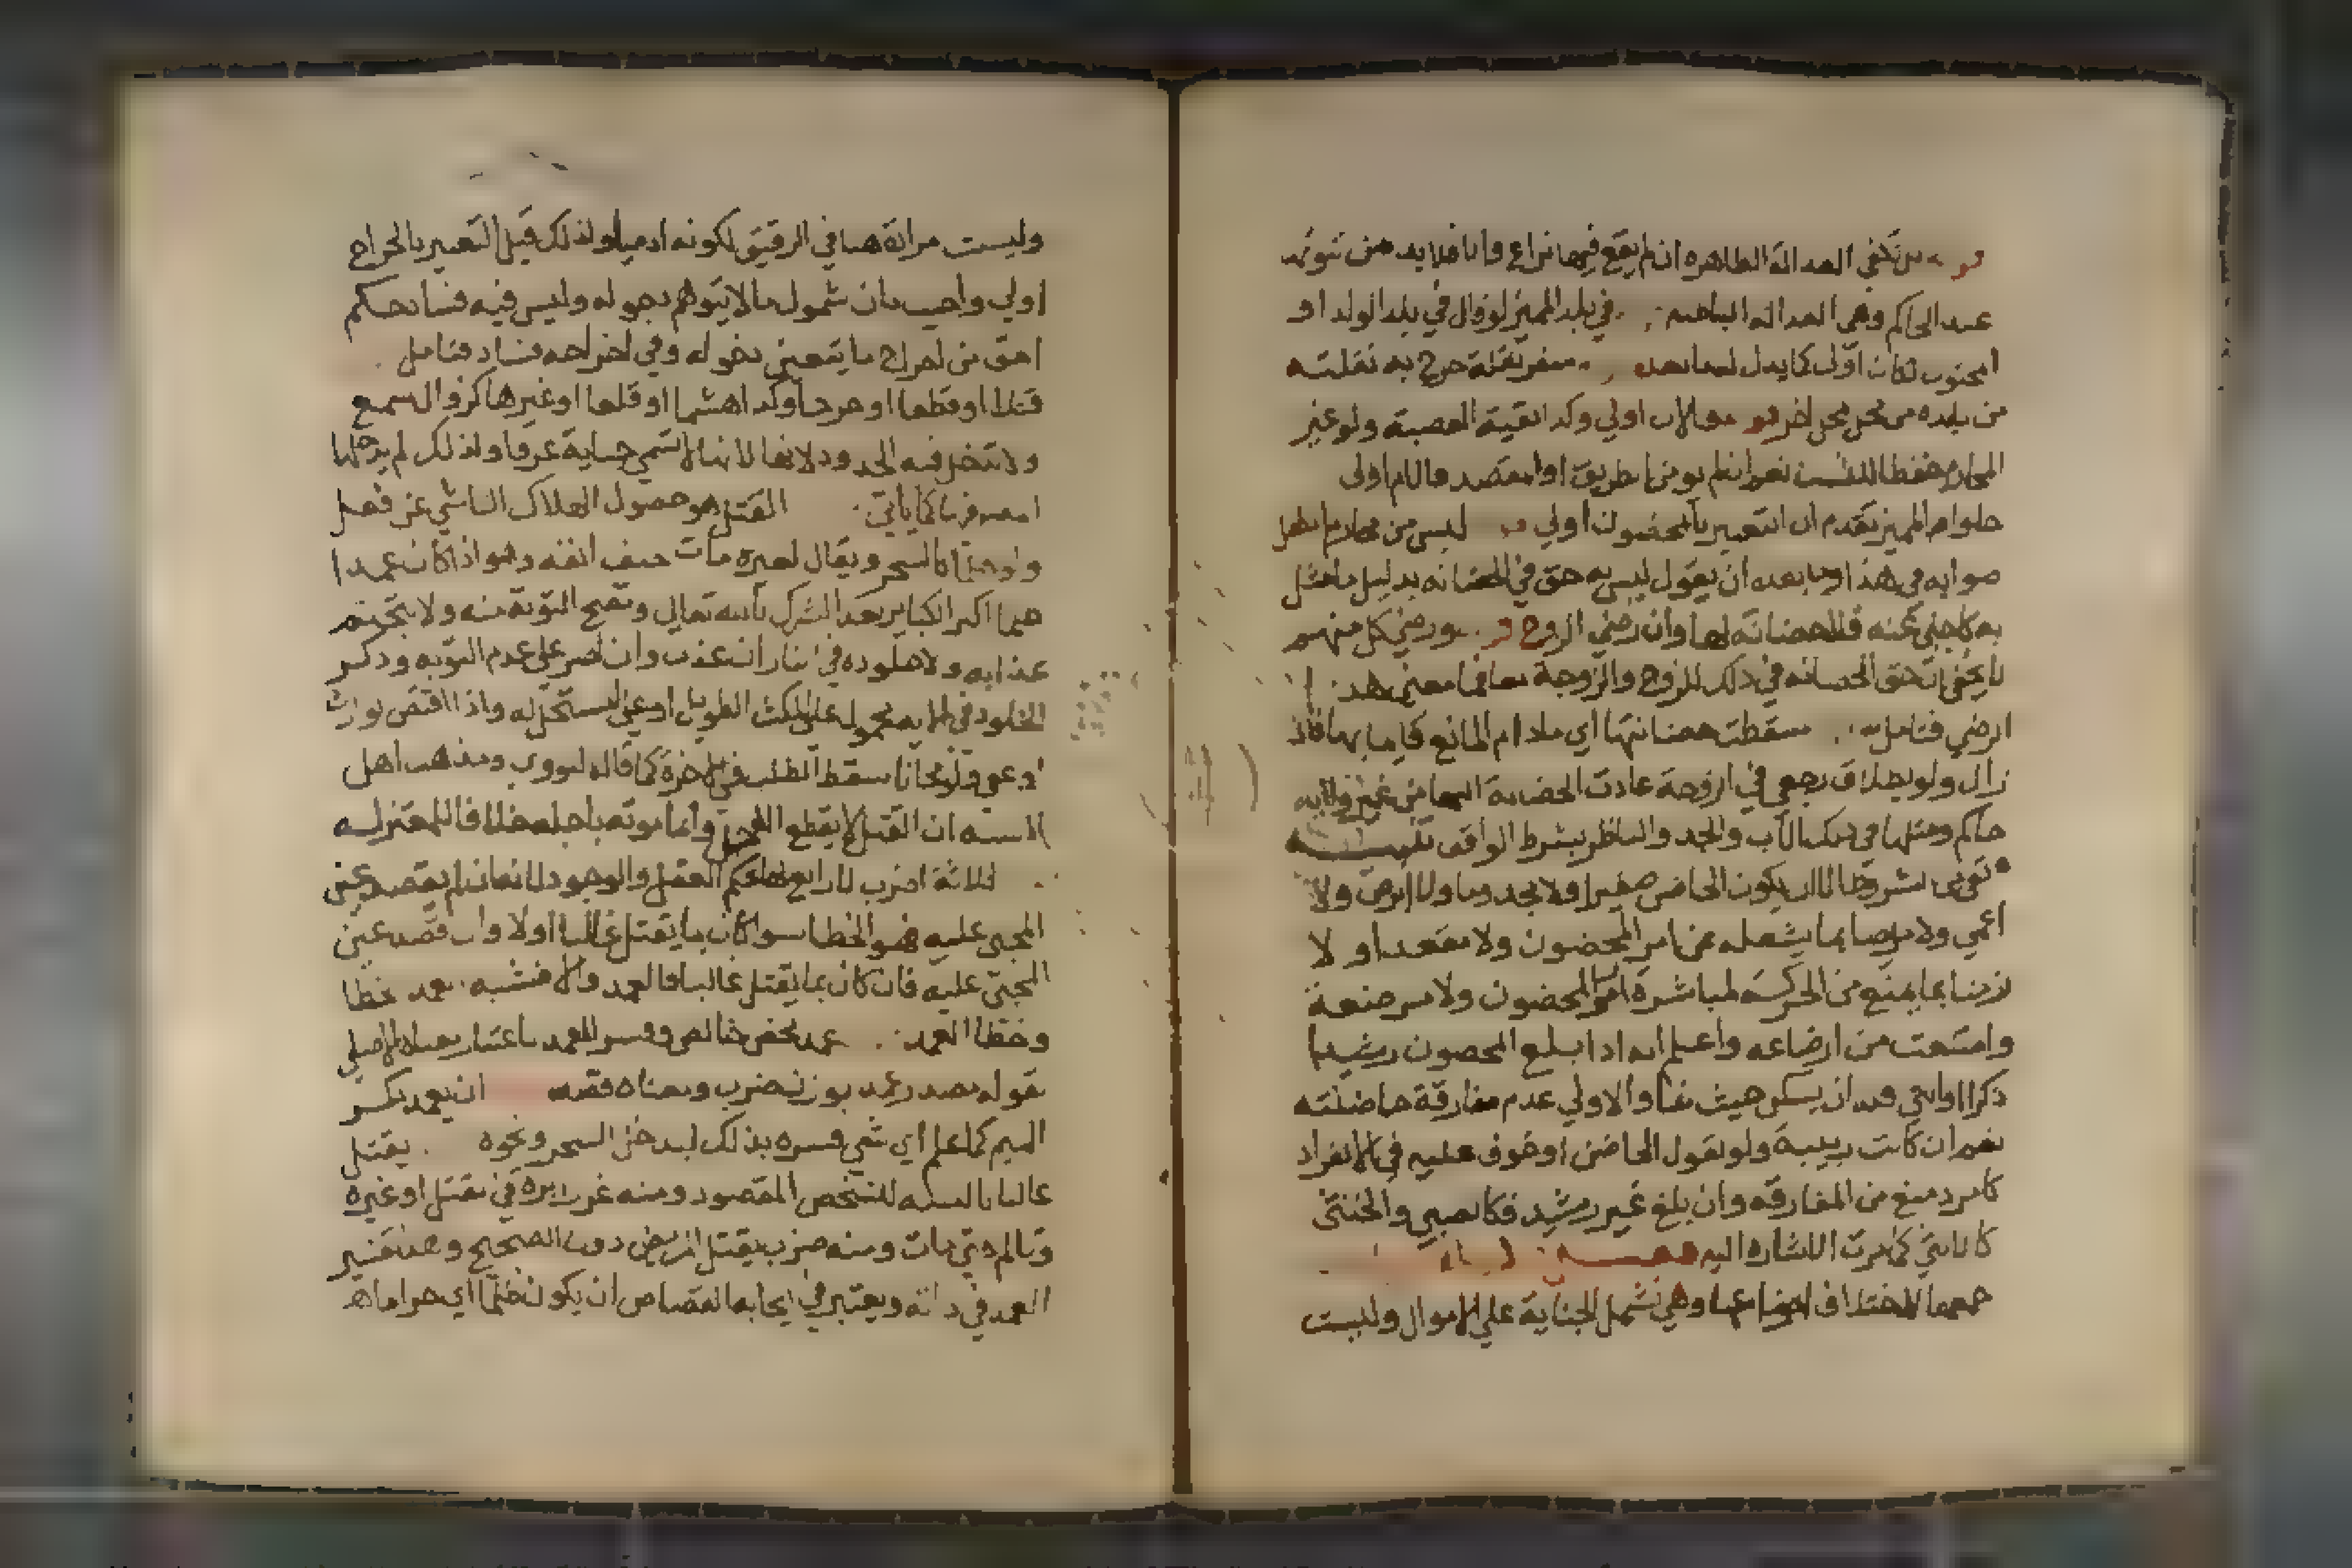 تكفي العدالة الظاهرة ان لم يقع فيها نزاع والا فلا بد من ثبوتها
عند الحاكم وهي العدالة الباطنة في بلد المميز لو قال في بلد الولد او
المجنون لكان اولى كما يدل لما بعده سفر نقلة خرج به نقلته
من بلده من محل لمحل اخر فالاب اولي وكذا بقية العصبة ولو غير
المحارم حفظا للنسب نعم ان لم يومن طريق او مقصد فالام اولى
المميز تقدم ان التعبير بالمحضون اولي ليس من محارم الطفل
صوابه في هذا وما بعده ان يقول ليس له حق في الحضانة بدليل ما مثل
به كاجنبي فلا حضانة لها وان رضي الزوج ورضي كل منهم
لا يخفى ان حق الحضانة في ذلك للزوج والزوجة معا فما معنى هذا
الرضي فتامل سقطت حضانتها اي ما دام المانع قايما بها فاذا
زال ولو بطلاق رجعي في الزوجة عادت الحضانة اليها من غير تولية
حاكم ومثلها في ذلك الاب والجد والناظر بشرط الواقف
شروطها ان لا يكون الحاضن صغيرا ولا مجذوما ولا ابرص ولا
اعمي ولا مريضا بما يشغله عن امر المحضون ولا مقعدا ولا
زمنا بما يمنع من الحركة لمباشرة امر المحضون ولا مرضعة
وامتنعت من ارضاعه واعلم انه اذا بلغ المحضون رشيدا
ذكرا او انثي فله ان يسكن حيث شا والاولي عدم مفارقة حاضنته
نعم ان كانت ريبة ولو بقول الحاضن او خوف عليه في الانفراد
كامرد منع من المفارقة وان بلغ غير رشيد فكالصبي والخنثى
كالانثي كما مرت الاشارة اليه
جمعها لاختلاف انواعها وهي تشمل الجناية علي الاموال وليست
وليست مرادة هنا في الرقيق لكونه ادميا ولذلك قيل التعبير بالجراح
اولي واجيب بان شمول ما لا يتوهم دخوله وليس فيه فساد حكم
احق من اخراج ما يتعين دخوله وفي اخراجه فساد فتامل
قتلا او قطعا او جرحا وكذا هشما او قلعا او غيرها كزوال سمع
ولا تدخل فيه الحدود لانها لا تسمى جناية عرفا ولذلك لم يدخلها
كما ياتي القتل هو حصول الهلاك الناشي عن فعل
ولو حكما كالسحر ويقال لغيره مات حتف انفه وهو اذا كان عمدا
اكبر الكباير بعد الشرك بالله تعالى وتصح التوبة منه ولا يتحتم
عذابه ولا خلوده في النار ان عذب وان اصر على عدم التوبة وذكر
الخلود في الاية محمول على المكث الطويل او على المستحل له واذا اقتص الوارث
او عفي ولو مجانا سقط الطلب في الاخرة كما قاله النووي ومذهب اهل
السنة ان القتل لا يقطع الاجل وانما موته باجله خلافا للمعتزلة
ثلاثة اضرب لا رابع لها بحكم العقل والوجود لانه ان لم يقصد عين
المجني عليه فهو الخطا سوا كان بما يقتل غالبا او لا وان قصد عين
المجني عليه فان كان بما يقتل غالبا فالعمد والا فشبه عمد خطا
وخطا العمد عمد محض خالص وفسر العمد باعتبار معناه الاصلي
بقوله مصدر عمد بوزن ضرب ومعناه قصد ان يعمد بكسر
الميم كما علم اي شي فسره بذلك ليدخل السحر ونحوه يقتل
غالبا بالنسبة للشخص المقصود ومنه غرز ابرة في مقتل او غيره
وتالم حتى مات ومنه ضرب يقتل المريض دون الصحيح وهذا تفسير
العمد في ذاته ويعتبر في ايجابه القصاص ان يكون ظلما اي حراما